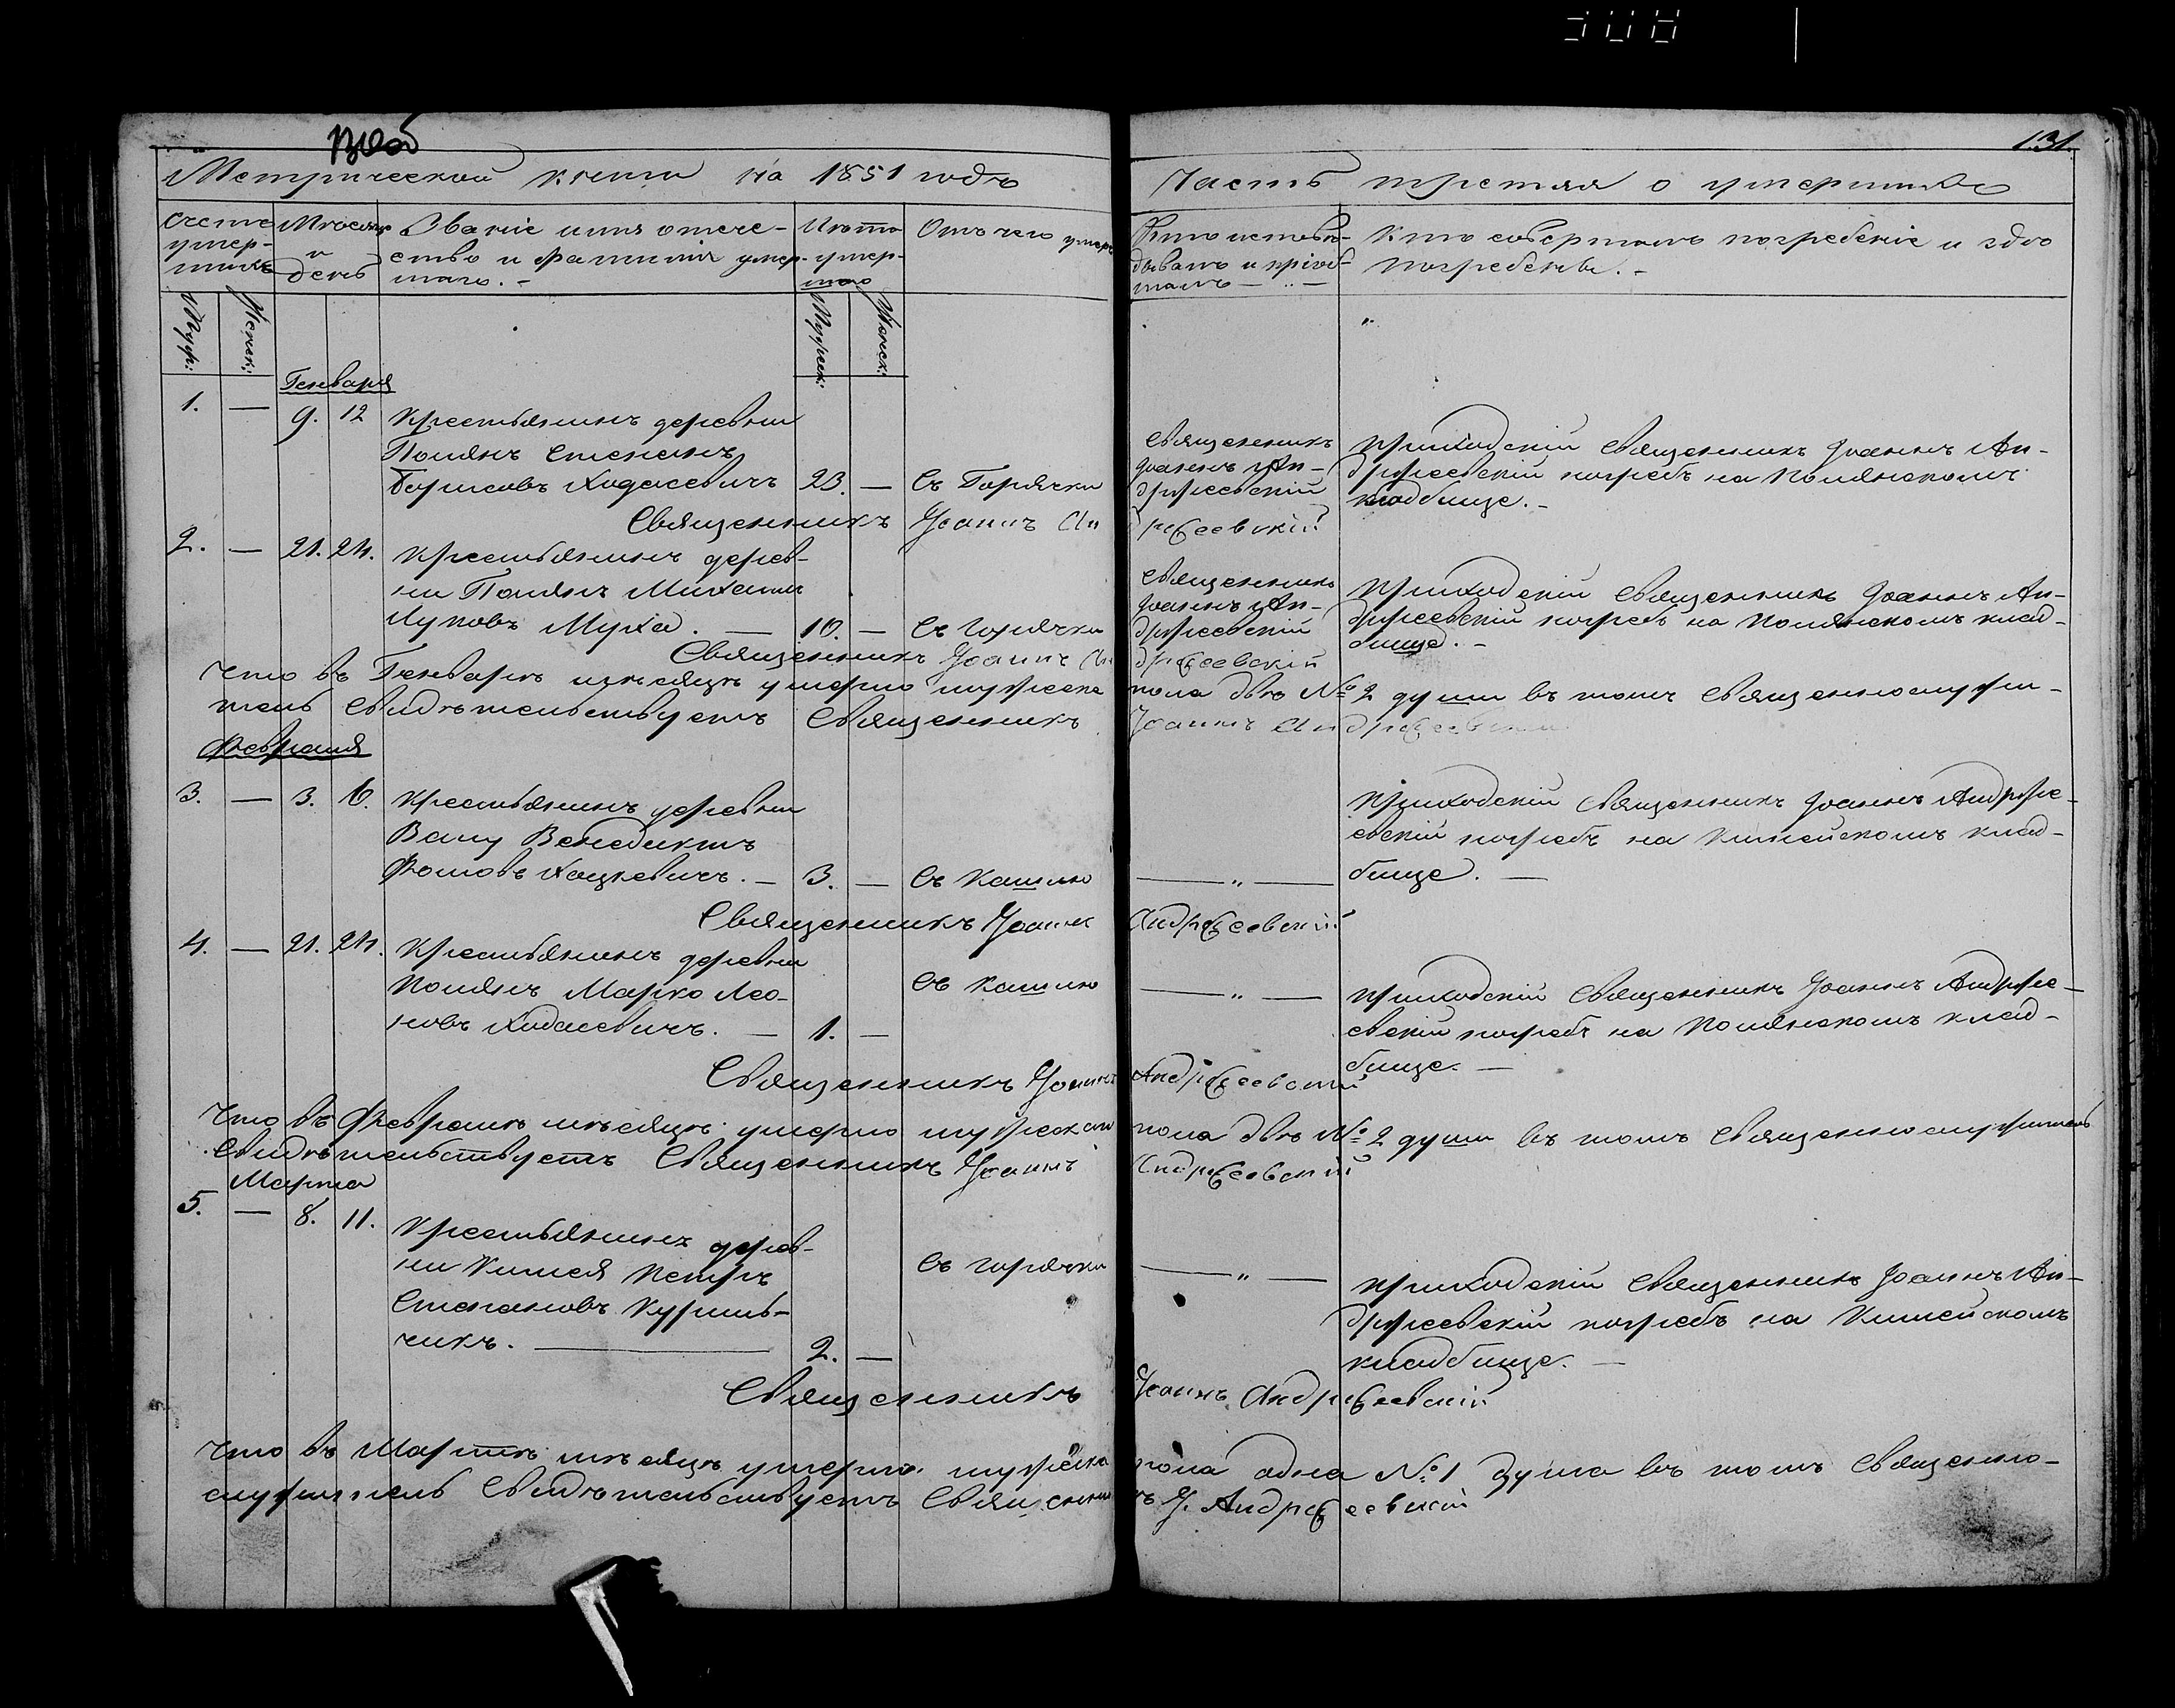 131.
Метрической книги на 1851 годъ
Часть третяя о умершихъ
Счетъ умершихъ
Мѣсяцъ и день
Званіе имя отече-
ство и фамилія умер-
шаго. -
Лѣта умер-
шаго
Отъ чего умеръ
Кто исповѣ-
дывалъ и пріоб-
щалъ
Кто совершалъ погребеніе и гдѣ
погребены. -
Мужеск:
Женск:
Мужеск:
Женск:
Генваря
1. — 9. 12 Крестьянинъ деревни
Полянъ Степанъ
Борисовъ Ходасевичъ 23. — Съ Горячки
Священникъ
Іоаннъ Ан-
држеевскій
Приходскій Священникъ Іоаннъ Ан-
држеевскій погребъ на Полянскомъ
кладбище. -
Священникъ Іоаннъ Андржеевскій
2. — 21. 24. Крестьянинъ дерев-
ни Полянъ Михаилъ
Луковъ Муха. — 10. — Съ горячки
Священникъ
Іоаннъ Ан-
држеевскій
Приходскій Священникъ Іоаннъ Ан-
држеевскій погребъ на Полянскомъ клад-
бище. -
Священникъ Іоаннъ Андржеевскій
Что въ Генварѣ мѣсяцѣ умерло мужеска пола двѣ № 2 души въ томъ Священнослужи-
тель Свидѣтельствуетъ Священникъ Іоаннъ Андржеевскій
Февраля
3. — 3. 6. Крестьянинъ деревни
Венедиктъ
Фомовъ Хацкевичъ. — 3. — Съ Кашлю
— " —
Приходскій Священникъ Іоаннъ Андрже-
евскій погребъ на Кишейскомъ клад-
бище. —
Священникъ Іоаннъ Андржеевскій
4. — 21. 24. Крестьянинъ деревни
Полянъ Марко Лео-
новъ Ходасевичъ. — 1. — Съ Кашлю
— " —
Приходскій Священникъ Іоаннъ Андрже-
евскій погребъ на Полянскомъ клад-
бище. —
Священникъ Іоаннъ Андржеевскій
Что въ Февралѣ мѣсяцѣ умерло мужеска пола двѣ № 2 души въ томъ Священнослужитель
Свидѣтельствуетъ Священникъ Іоаннъ Андржеевскій
Марта
5. — 8. 11. Крестьянинъ дерев-
ни Петръ
Степановъ Курил-
чикъ. — 2. — Съ горячки
— " —
Приходскій Священникъ Іоаннъ Ан-
држеевскій погребъ на Кишейскомъ
кладбище. —
Священникъ Іоаннъ Андржеевскій
Что въ Мартѣ мѣсяцѣ умерло мужеска пола одна № 1 душа въ томъ Священно-
служитель Свидѣтельствуетъ Священникъ І. Андржеевскій